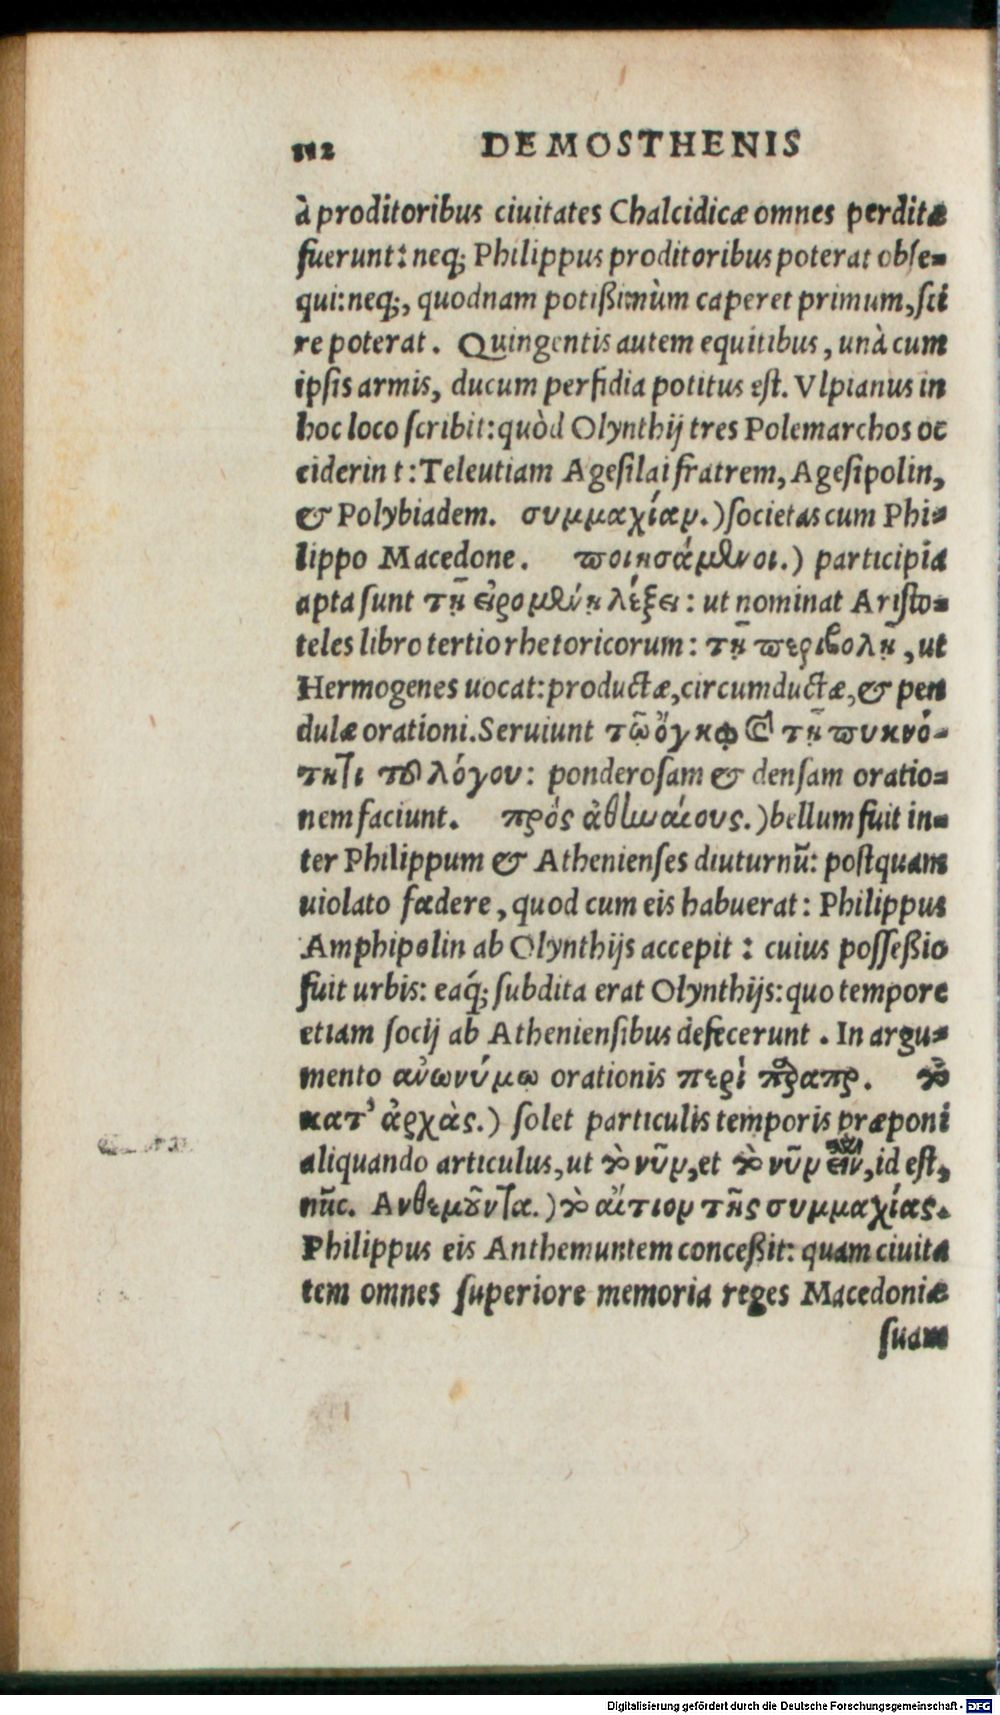 112 DEMOSTHENIS
à proditoribus ciuitates Chalcidicæ omnes perditæ
fuerunt: neq; Philippus proditoribus poterat obse-
qui: neq;, quodnam potißimùm caperet primum, sci
re poterat. Quingentis autem equitibus, unà cum
ipsis armis, ducum perfidia potitus est. Vlpianus in
hoc loco scribit: quòd Olynthij tres Polemarchos oc
ciderint: Teleutiam Agesilai fratrem, Agesipolin,
& Polybiadem. συμμαχίαν.) societas cum Phi-
lippo Macedone. ποιησάμενοι.) participia
apta sunt τῇ εἰρομένῃ λέξει: ut nominat Aristo-
teles libro tertio rhetoricorum: τῇ περιβολῇ, ut
Hermogenes uocat: productæ, circumductæ, & pen
dulæ orationi. Seruiunt τῷ ὄγκῳ καὶ τῇ πυκνό-
τητι τοῦ λόγου: ponderosam & densam oratio-
nem faciunt. πρός ἀθηναίους.) bellum fuit in-
ter Philippum & Athenienses diuturnũ: postquam
uiolato fœdere, quod cum eis habuerat: Philippus
Amphipolin ab Olynthijs accepit: cuius possessio
fuit urbis: eaq́; subdita erat Olynthijs: quo tempore
etiam socij ab Atheniensibus defecerunt. In argu-
mento ανωνύμω orationis περὶ παραπρ. τὸ
κατ' ἀρχὰς.) solet particulis temporis præponi
aliquando articulus, ut τὸ νῦν, et τὸ νῦν εἶναι, id est,
nũc. Ανθεμοῦντα.) τὸ αἴτιον τῆς συμμαχίας.
Philippus eis Anthemuntem conceßit: quam ciuita
tem omnes superiore memoria reges Macedoniæ
suam
Digitalisierung gefördert durch die Deutsche Forschungsgemeinschaft - DFG